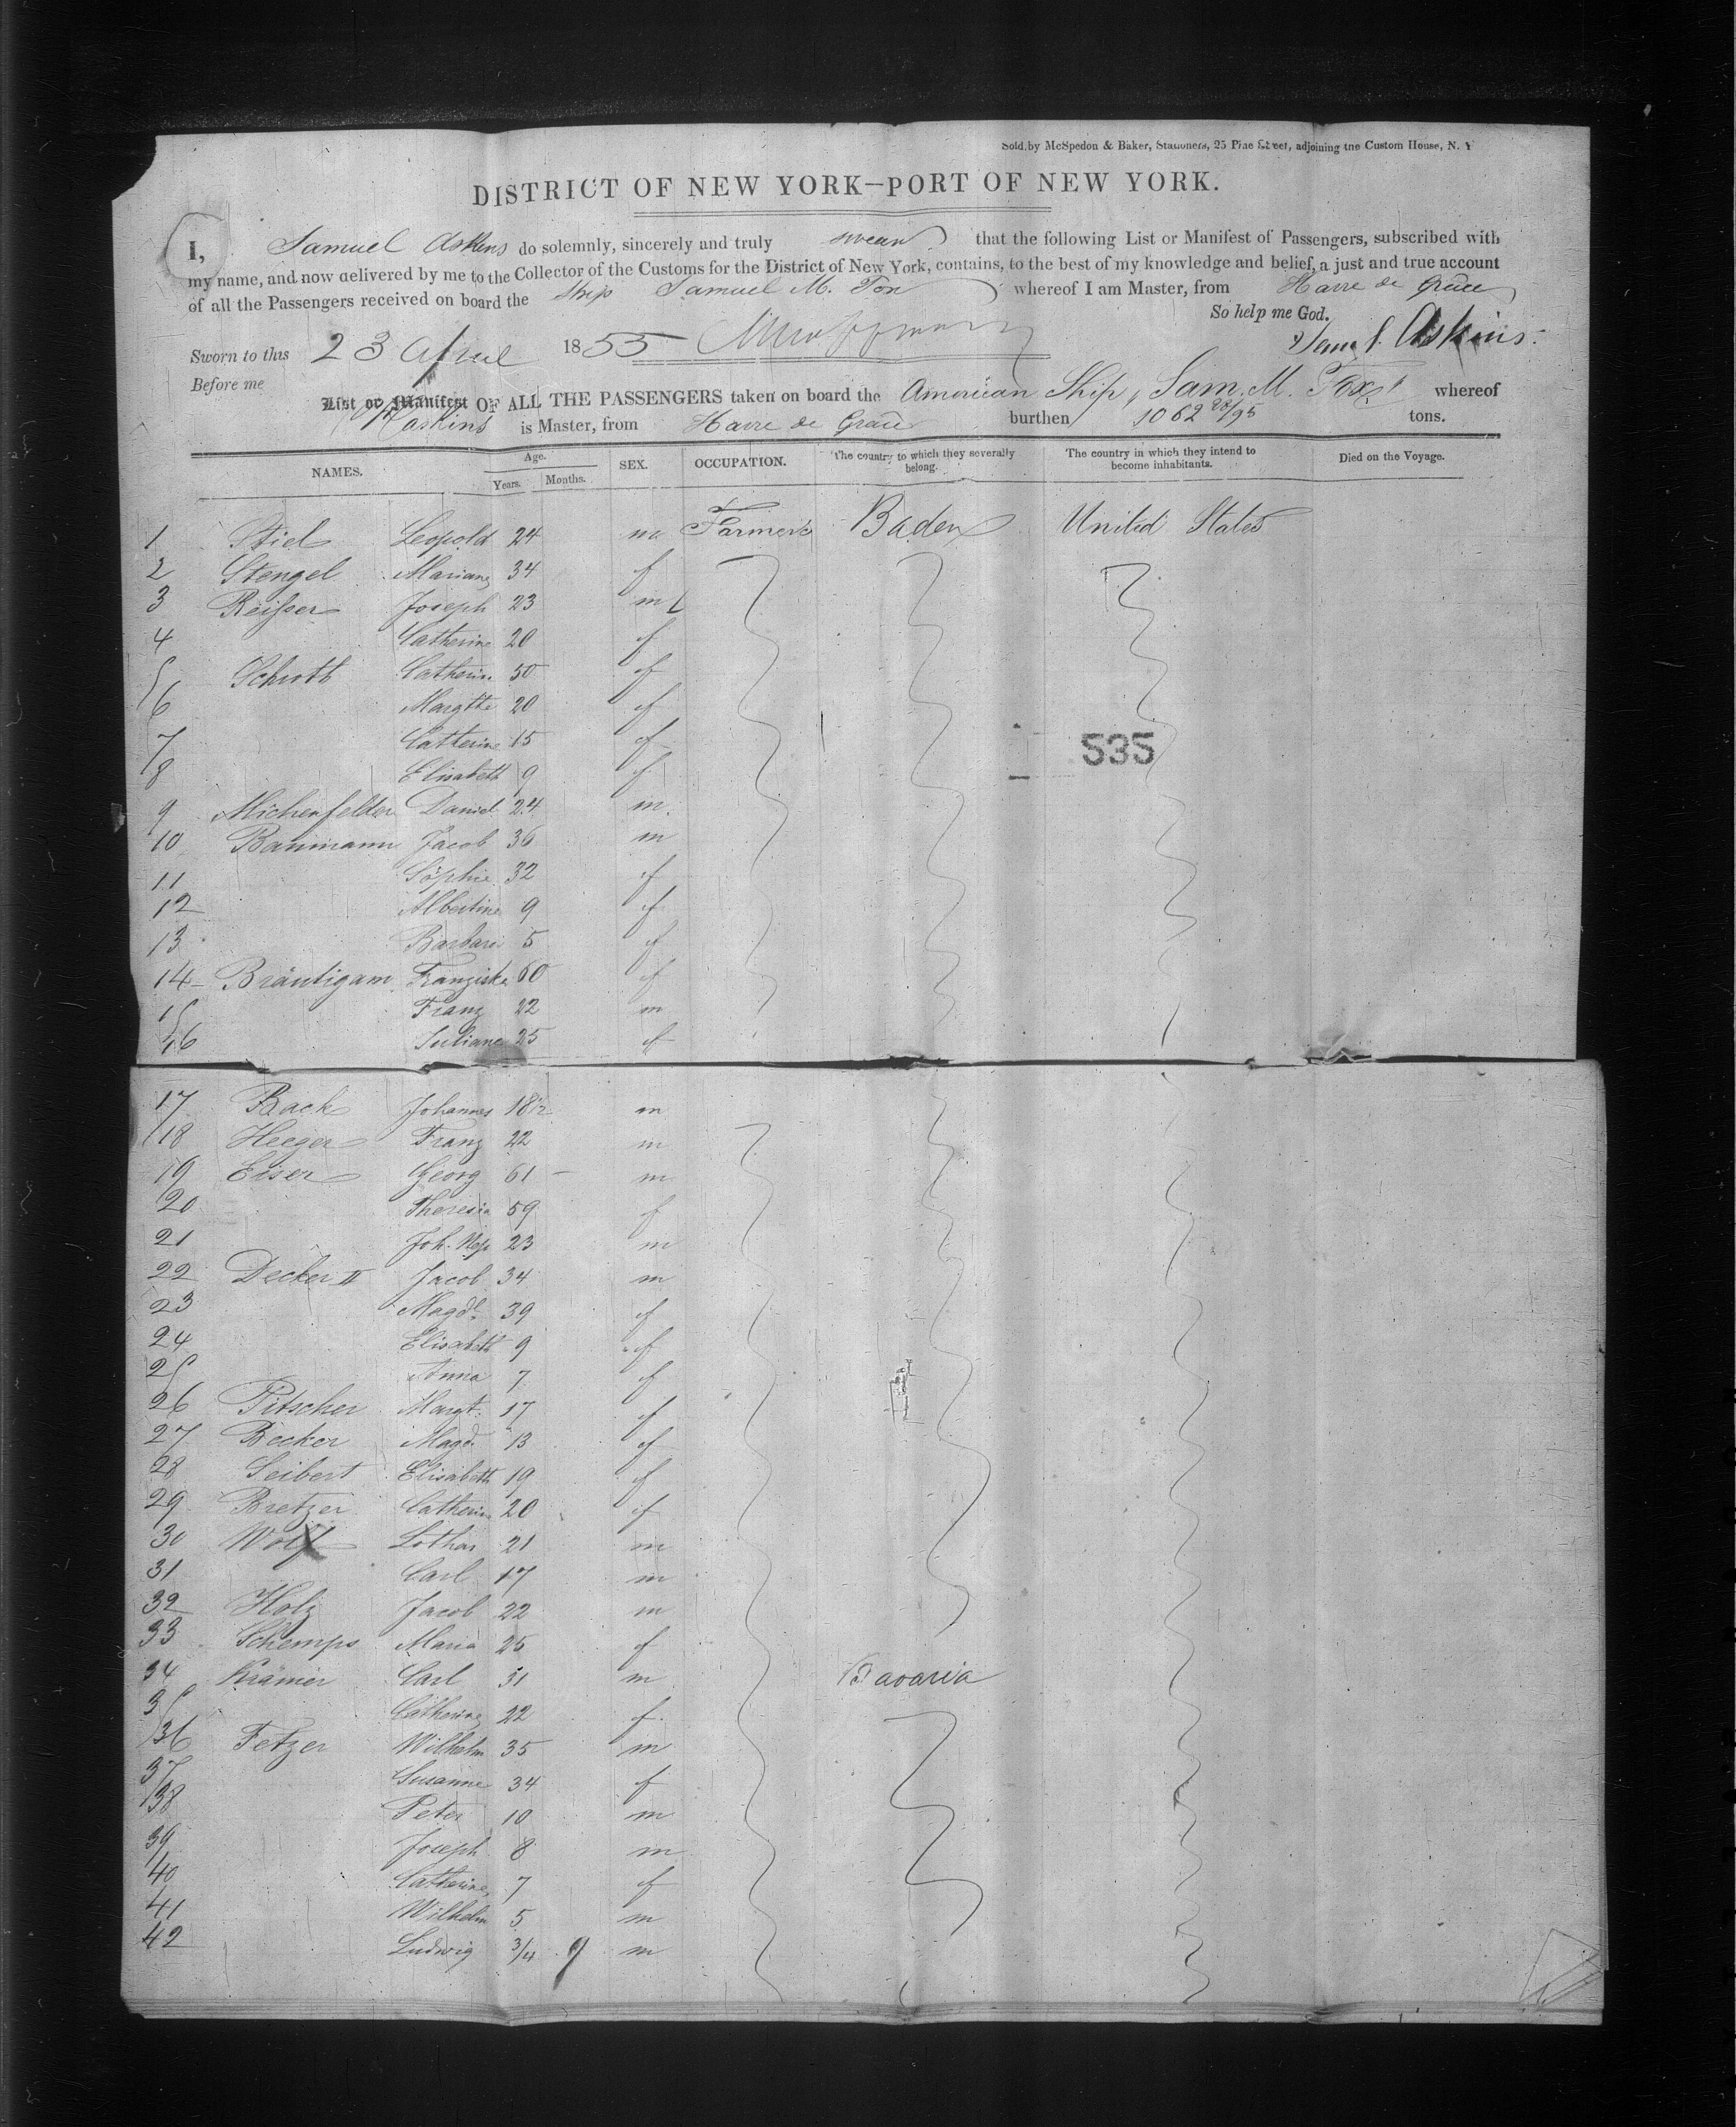 Sold by McSpedon & Baker, Stationers, 25 Pine Street, adjoining the Custom House, N. Y
DISTRICT OF NEW YORK—PORT OF NEW YORK.
I, Samuel Askins do solemnly, sincerely and truly swear that the following List or Manifest of Passengers, subscribed with
my name, and now delivered by me to the Collector of the Customs for the District of New York, contains, to the best of my knowledge and belief, a just and true account
of all the Passengers received on board the Ship Samuel M. Fox whereof I am Master, from Havre de Grace
So help me God.
Sworn to this 23 April 1855 Saml. Askins.
Before me
List or Manifest OF ALL THE PASSENGERS taken on board the American Ship, Sam. M. Fox, whereof
Askins is Master, from Havre de Grace burthen 1062 28/95 tons.
NAMES. Age. Years. Months. SEX. OCCUPATION. The country to which they severally belong. The country in which they intend to become inhabitants. Died on the Voyage.
1 Stiel Leopold 24 m Farmers Baden United States
2 Stengel Mariane 34 f
3 Reisser Joseph 23 m
4 Catherine 20 f
5 Schroth Catherine 50 f
6 Margtte 20 f
7 Catterine 15 f
8 Elisabeth 9 f
535
9 Michenfelder Daniel 24 m.
10 Baumann Jacob 36 m
11 Sophie 32 f
12 Albertine 9 f
13 Barbara 5 f
14 Bräutigam Franziska 60 f
15 Franz 22 m
16 Juliane 25 f
17 Back Johannes 18 1/2 m
18 Heeger Franz 22 m
19 Eiser Georg 61 m
20 Theresia 59 f
21 Joh. Nep 23 m
22 Decker II Jacob 34 m
23 Magdl. 39 f
24 Elisabeth 9 f
25 Anna 7 f
26 Pitscher Margt. 17 f
27 Becker Magd. 13 f
28 Seibert Elisabeth 19 f
29 Bretzer Catherine 20 f
30 Wolf Lothar 21 m
31 Carl 17 m
32 Holz Jacob 22 m
33 Schemps Maria 25 f
34 Krämer Carl 31 m Bavaria
35 Catherine 22 f
36 Fetzer Wilhelm 35 m
37 Susanne 34 f
38 Peter 10 m
39 Joseph 8 m
40 Catherine 7 f
41 Wilhelm 5 m
42 Ludwig 3/4 9 m